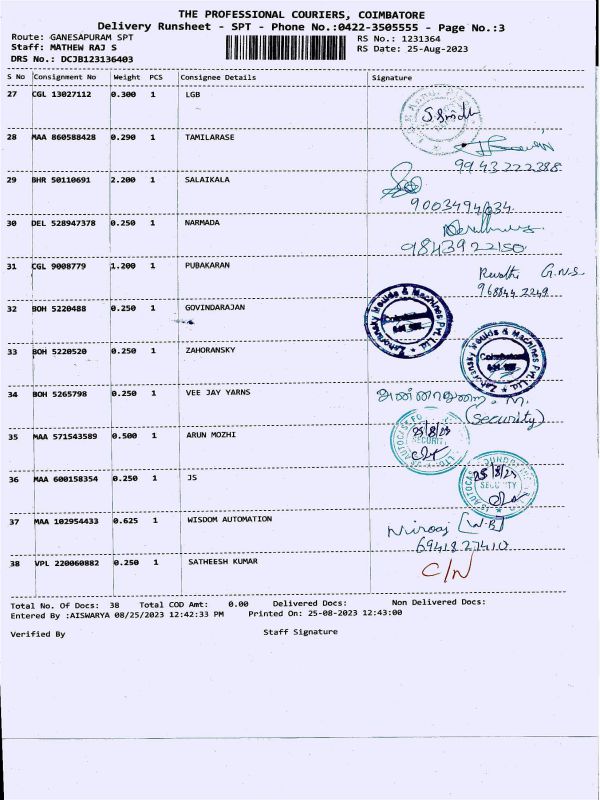 THE PROFESSIONAL COURIERS, COIMBATORE
Delivery Runsheet - SPT - Phone No.:0422-3505555 - Page No.:3
Route: GANESAPURAM SPT
RS No.: 1231364
Staff: MATHEW RAJ S
RS Date: 25-Aug-2023
DRS No.: DCJB123136403
S No Consignment No Weight PCS Consignee Details Signature
27 CGL 13027112 0.300 1 LGB
28 MAA 860588428 0.290 1 TAMILARASE
9943222388
29 BHR 50110691 2.200 1 SALAIKALA
9003494234
30 DEL 528947378 0.250 1 NARMADA
9843922150
31 CGL 9008779 1.200 1 PUBAKARAN
G.N.S.
968844 2249
32 BOH 5220488 0.250 1 GOVINDARAJAN
Zahoransky Moulds & Machines Pvt. Ltd.
33 BOH 5220520 0.250 1 ZAHORANSKY
Zahoransky Moulds & Machines Pvt. Ltd.
34 BOH 5265798 0.250 1 VEE JAY YARNS
(Security)
35 MAA 571543589 0.500 1 ARUN MOZHI
25/8/23
SECURITY
36 MAA 600158354 0.250 1 J5
25/8/23
SECURITY
37 MAA 102954433 0.625 1 WISDOM AUTOMATION
Niroaj [W.B]
6941827410
38 VPL 220060882 0.250 1 SATHEESH KUMAR
C/N
Total No. Of Docs: 38 Total COD Amt: 0.00 Delivered Docs: Non Delivered Docs:
Entered By :AISWARYA 08/25/2023 12:42:33 PM Printed On: 25-08-2023 12:43:00
Verified By Staff Signature